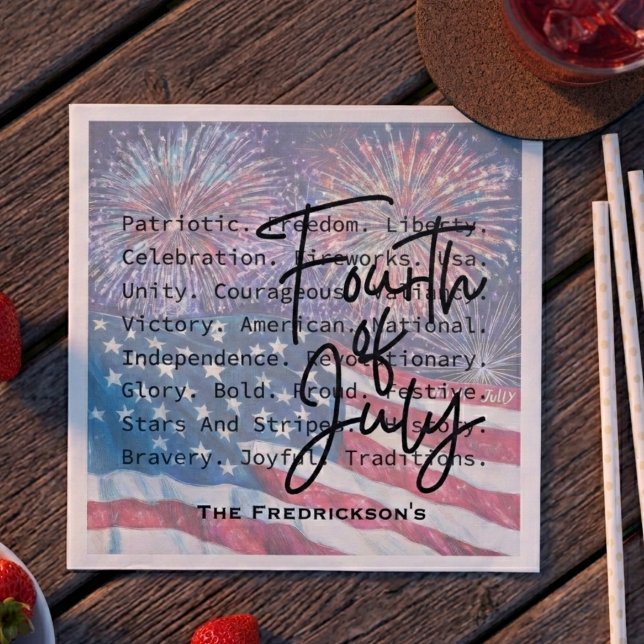 Patriotic. Freedom. Liberty.
Celebration. Fireworks. Usa.
Unity. Courageous. Valiance.
Victory. American. National.
Independence. Revolutionary.
Glory. Bold. Proud. Festive.
Stars And Stripes. History.
Bravery. Joyful. Traditions.
Fourth
of
July
JullY
The Fredrickson's